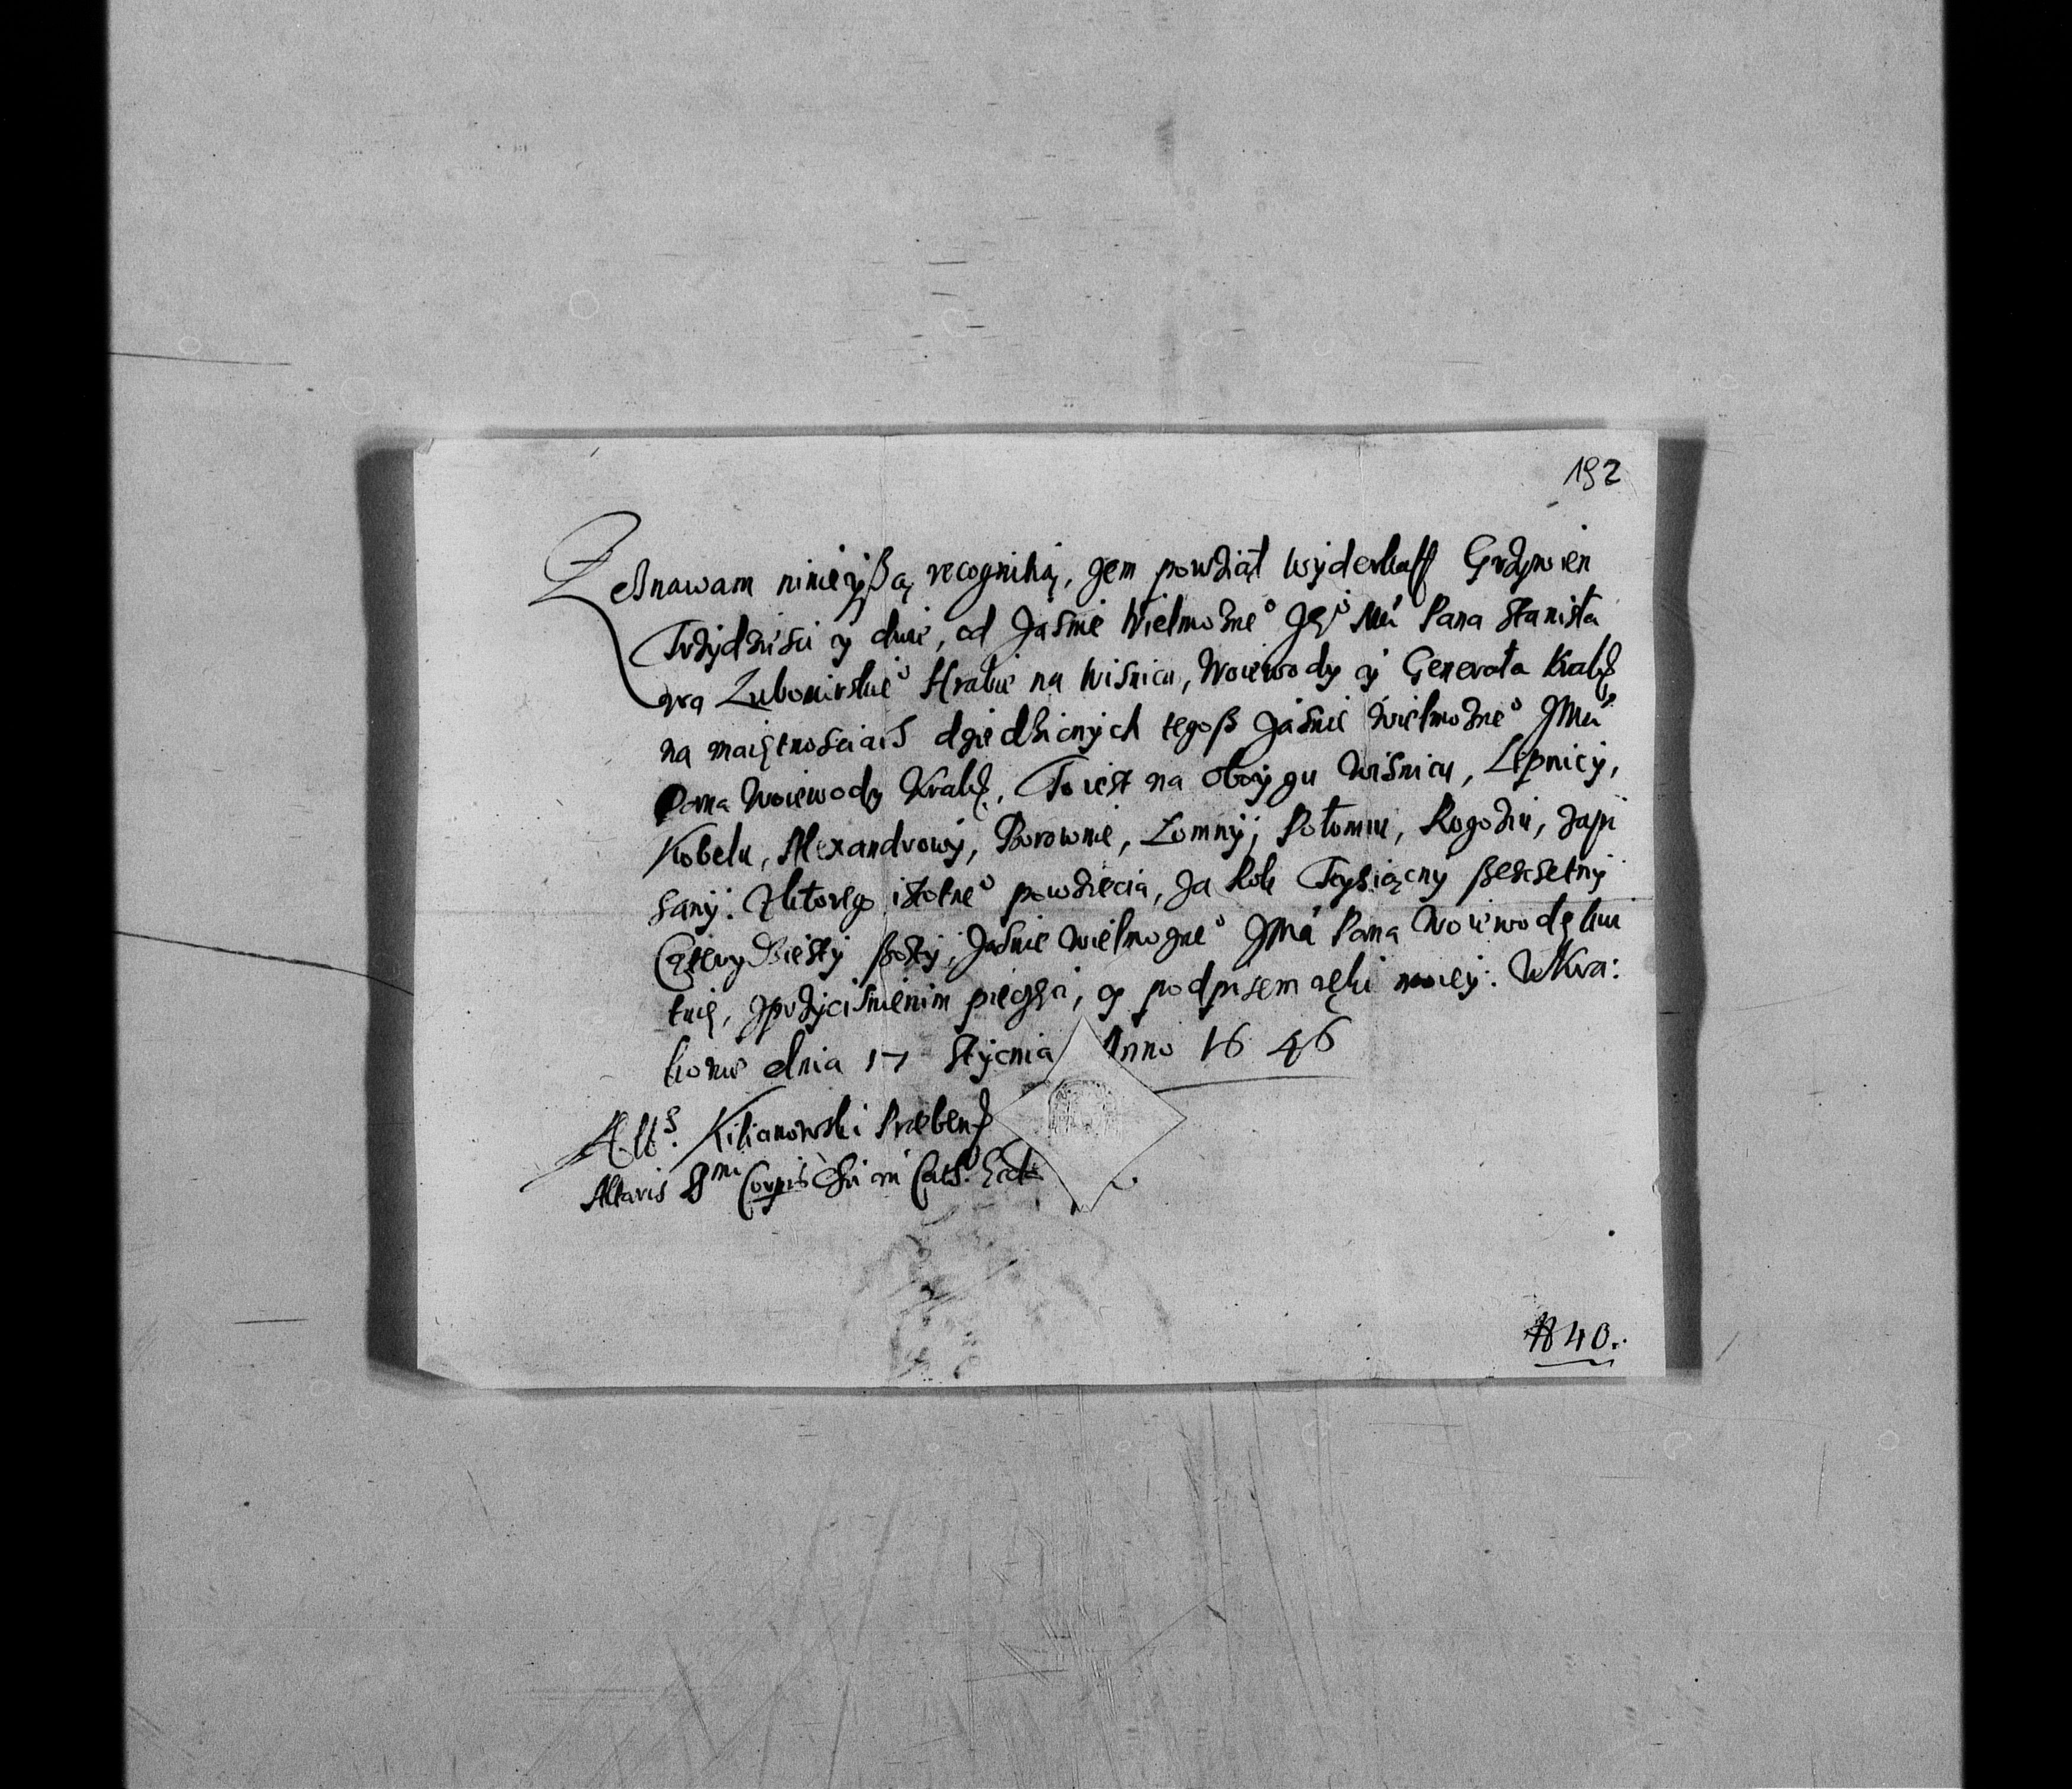 192
Zeznawam ninieyßą recognitią, żem powziął wyderkaff Grzywien
Trzydzieści y dwie, od Jasnie Wielmożneº Jegº Mci Pana Stanisła
wa Lubomirskieº Hrabie na Wiśniczu, Woiewody y Generała Krakſ
na maiętnosciach dziedzicznych tegoß Jaśnie Wielmożneº JMci
Pana Woiewody Krakſ, To iest na oboygu Wiśniczu, Lipnicy,
Kobelu, Alexandrowy, Borownie, Łomny, Połomiu, Rogoziu, zapi
sany. Z ktorego istotneº powzięcia, za Rok Tysiączny ßescsetny
Czterydziesty ßosty, Jaśnie wielmożneº JMci Pana Woiewodę kwi
tuię, z przyciśnienim pieczęci, y podpisem ręki moiey. W Kra:
kowie dnia 17 Stycznia Anno 1646
Albˢ. Kilianowski Præbenſ
Altaris SSmi Corpis Chri in Cath. Eccl.
# 40.